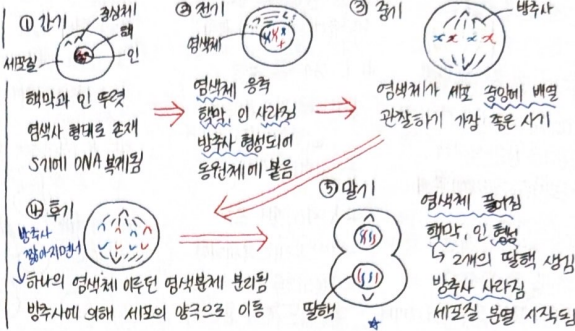 ① 간기
중심체
핵
인
세포질
핵막과 인 뚜렷
염색사 형태로 존재
S기에 DNA 복제됨
② 전기
염색체
염색체 응축
핵막, 인 사라짐
방추사 형성되어
동원체에 붙음
③ 중기
방추사
염색체가 세포 중앙에 배열
관찰하기 가장 좋은 시기
④ 후기
방추사
짧아지면서
하나의 염색체 이루던 염색분체 분리됨
방추사에 의해 세포의 양극으로 이동
⑤ 말기
딸핵
염색체 풀어짐
핵막, 인 형성
↳ 2개의 딸핵 생김
방추사 사라짐
세포질 분열 시작됨